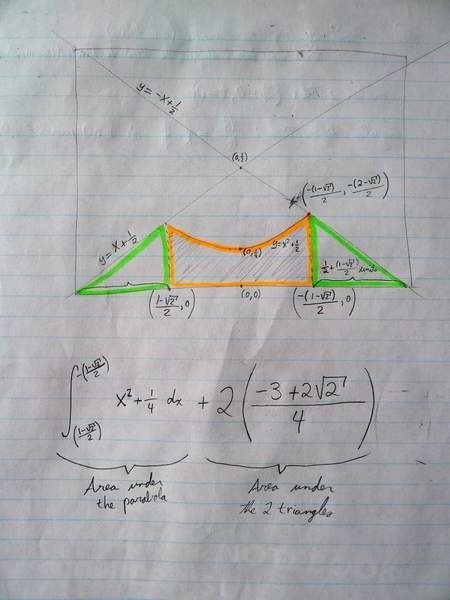 y = -x + 1/2
(0, 1/2)
(-(1-√2)/2, -(2-√2)/2)
y = x + 1/2
(0, 1/4)
y = x² + 1/2
1/2 + (1-√2)/2 units
((1-√2)/2, 0)
(0,0)
(-(1-√2)/2, 0)
∫ from ((1-√2)/2) to -((1-√2)/2) x² + 1/4 dx + 2((-3+2√2)/4)
Area under
the parabola
Area under
the 2 triangles